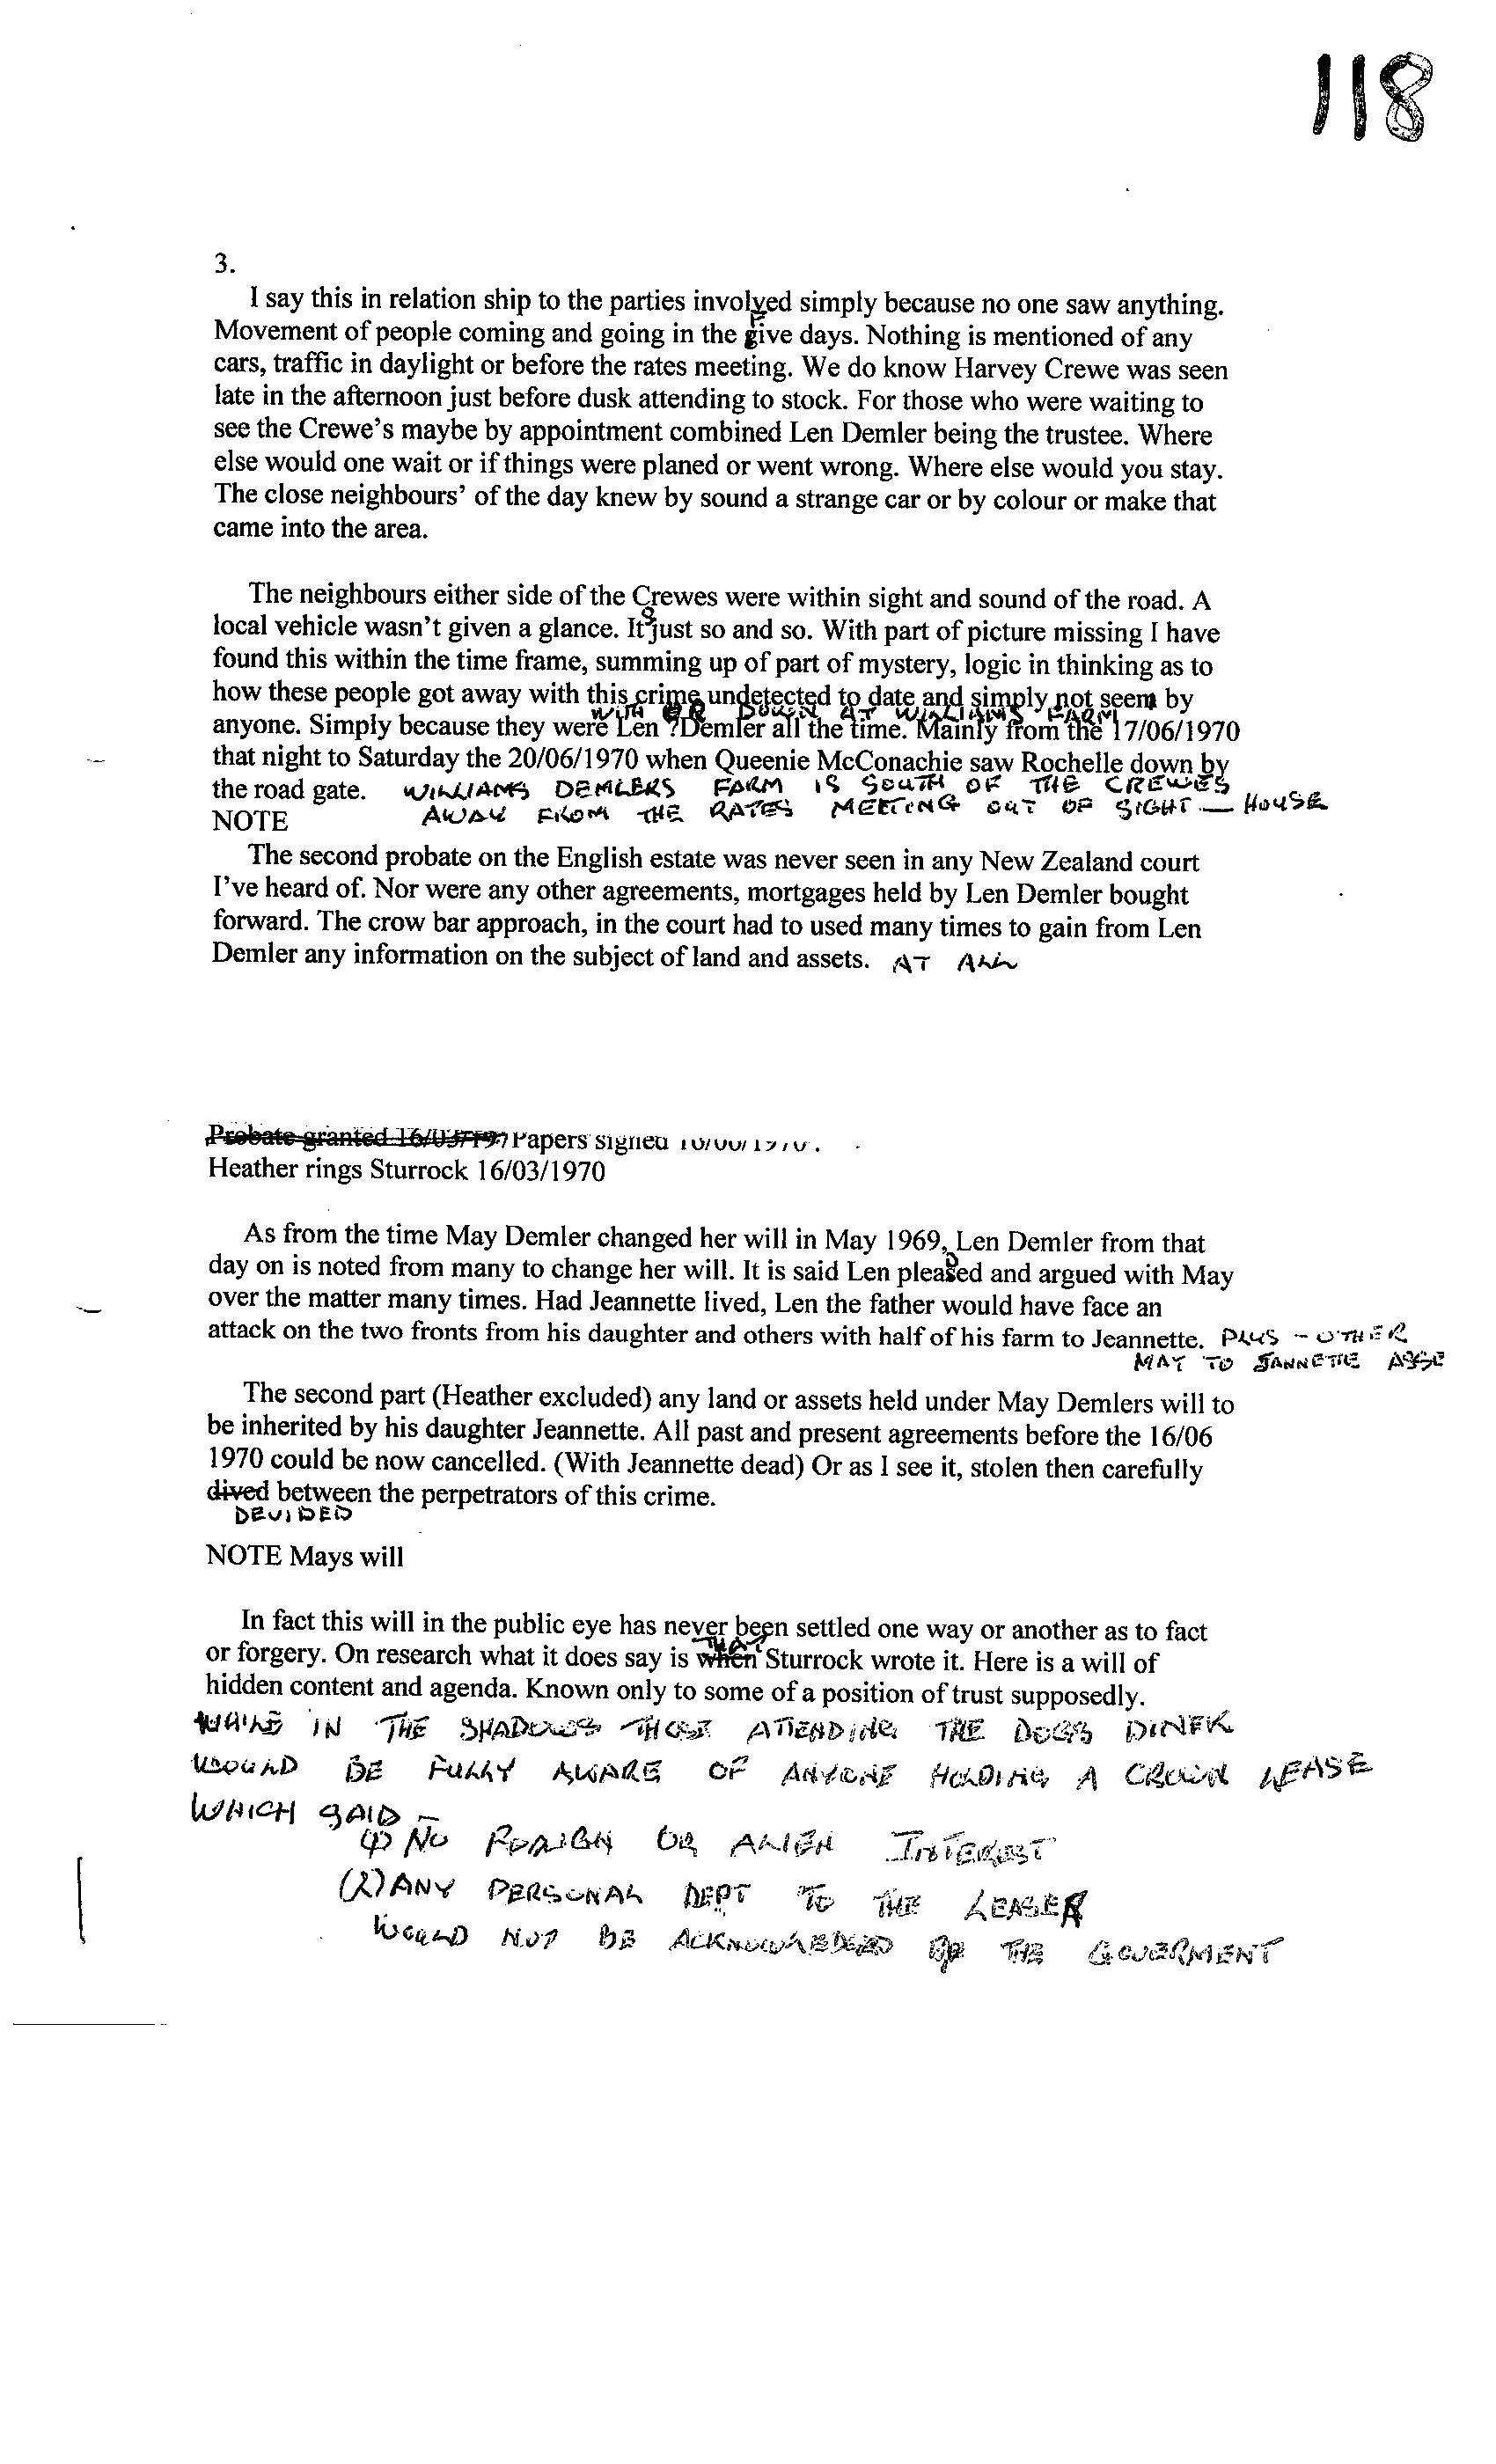 118
3.
I say this in relation ship to the parties involved simply because no one saw anything.
F
Movement of people coming and going in the give days. Nothing is mentioned of any
cars, traffic in daylight or before the rates meeting. We do know Harvey Crewe was seen
late in the afternoon just before dusk attending to stock. For those who were waiting to
see the Crewe's maybe by appointment combined Len Demler being the trustee. Where
else would one wait or if things were planed or went wrong. Where else would you stay.
The close neighbours' of the day knew by sound a strange car or by colour or make that
came into the area.
The neighbours either side of the Crewes were within sight and sound of the road. A
local vehicle wasn't given a glance. It's just so and so. With part of picture missing I have
found this within the time frame, summing up of part of mystery, logic in thinking as to
how these people got away with this crime undetected to date and simply not seen by
WITH OR DOWN AT WILLIAMS FARM
anyone. Simply because they were Len ?Demler all the time. Mainly from the 17/06/1970
that night to Saturday the 20/06/1970 when Queenie McConachie saw Rochelle down by
the road gate. WILLIAMS DEMLERS FARM IS SOUTH OF THE CREWES
NOTE AWAY FROM THE RATES MEETING OUT OF SIGHT — HOUSE
The second probate on the English estate was never seen in any New Zealand court
I've heard of. Nor were any other agreements, mortgages held by Len Demler bought
forward. The crow bar approach, in the court had to used many times to gain from Len
Demler any information on the subject of land and assets. AT ALL
Probate granted Papers signed
Heather rings Sturrock 16/03/1970
As from the time May Demler changed her will in May 1969, Len Demler from that
day on is noted from many to change her will. It is said Len pleaded and argued with May
over the matter many times. Had Jeannette lived, Len the father would have face an
attack on the two fronts from his daughter and others with half of his farm to Jeannette. PLUS - OTHER
MAY TO JANNETTE
The second part (Heather excluded) any land or assets held under May Demlers will to
be inherited by his daughter Jeannette. All past and present agreements before the 16/06
1970 could be now cancelled. (With Jeannette dead) Or as I see it, stolen then carefully
dived between the perpetrators of this crime.
DEVIDED
NOTE Mays will
In fact this will in the public eye has never been settled one way or another as to fact
THAT
or forgery. On research what it does say is when Sturrock wrote it. Here is a will of
hidden content and agenda. Known only to some of a position of trust supposedly.
WHILE IN THE SHADOWS THOSE ATTENDING THE DOGS DINER
WOULD BE FULLY AWARE OF ANYONE HOLDING A CROWN LEASE
WHICH SAID -
(1) NO FORIGN OR ALIEN INTEREST
(2) ANY PERSONAL DEPT TO THE LEASER
WOULD NOT BE ACKNOWLEDGED BY THE GOVERMENT